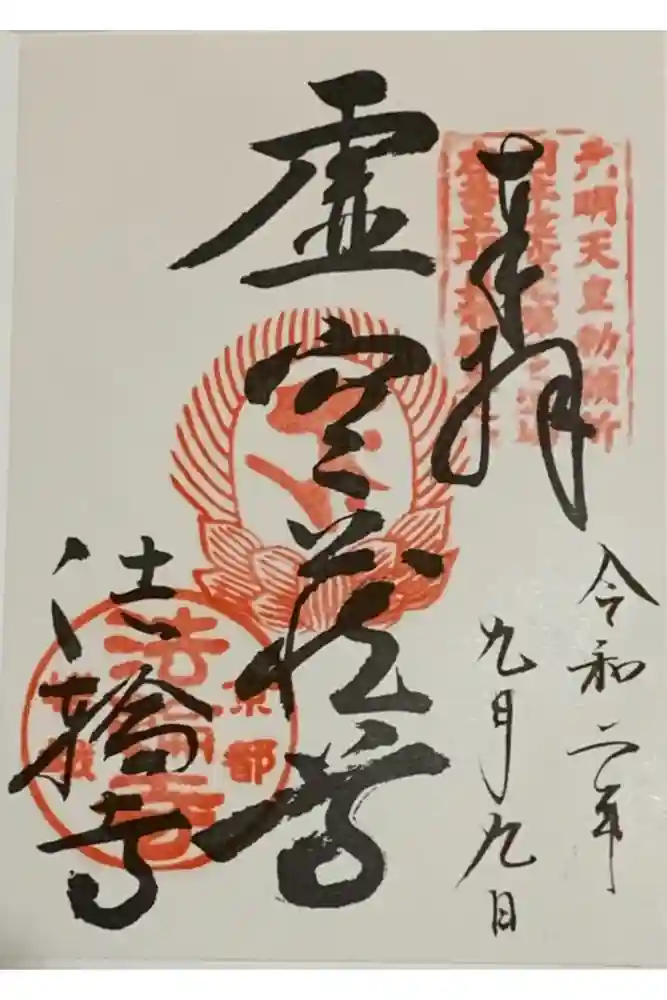 奉拝
元明天皇勅願所
令和二年
九月九日
虚空蔵尊
法輪寺
京都
法輪寺
嵯峨